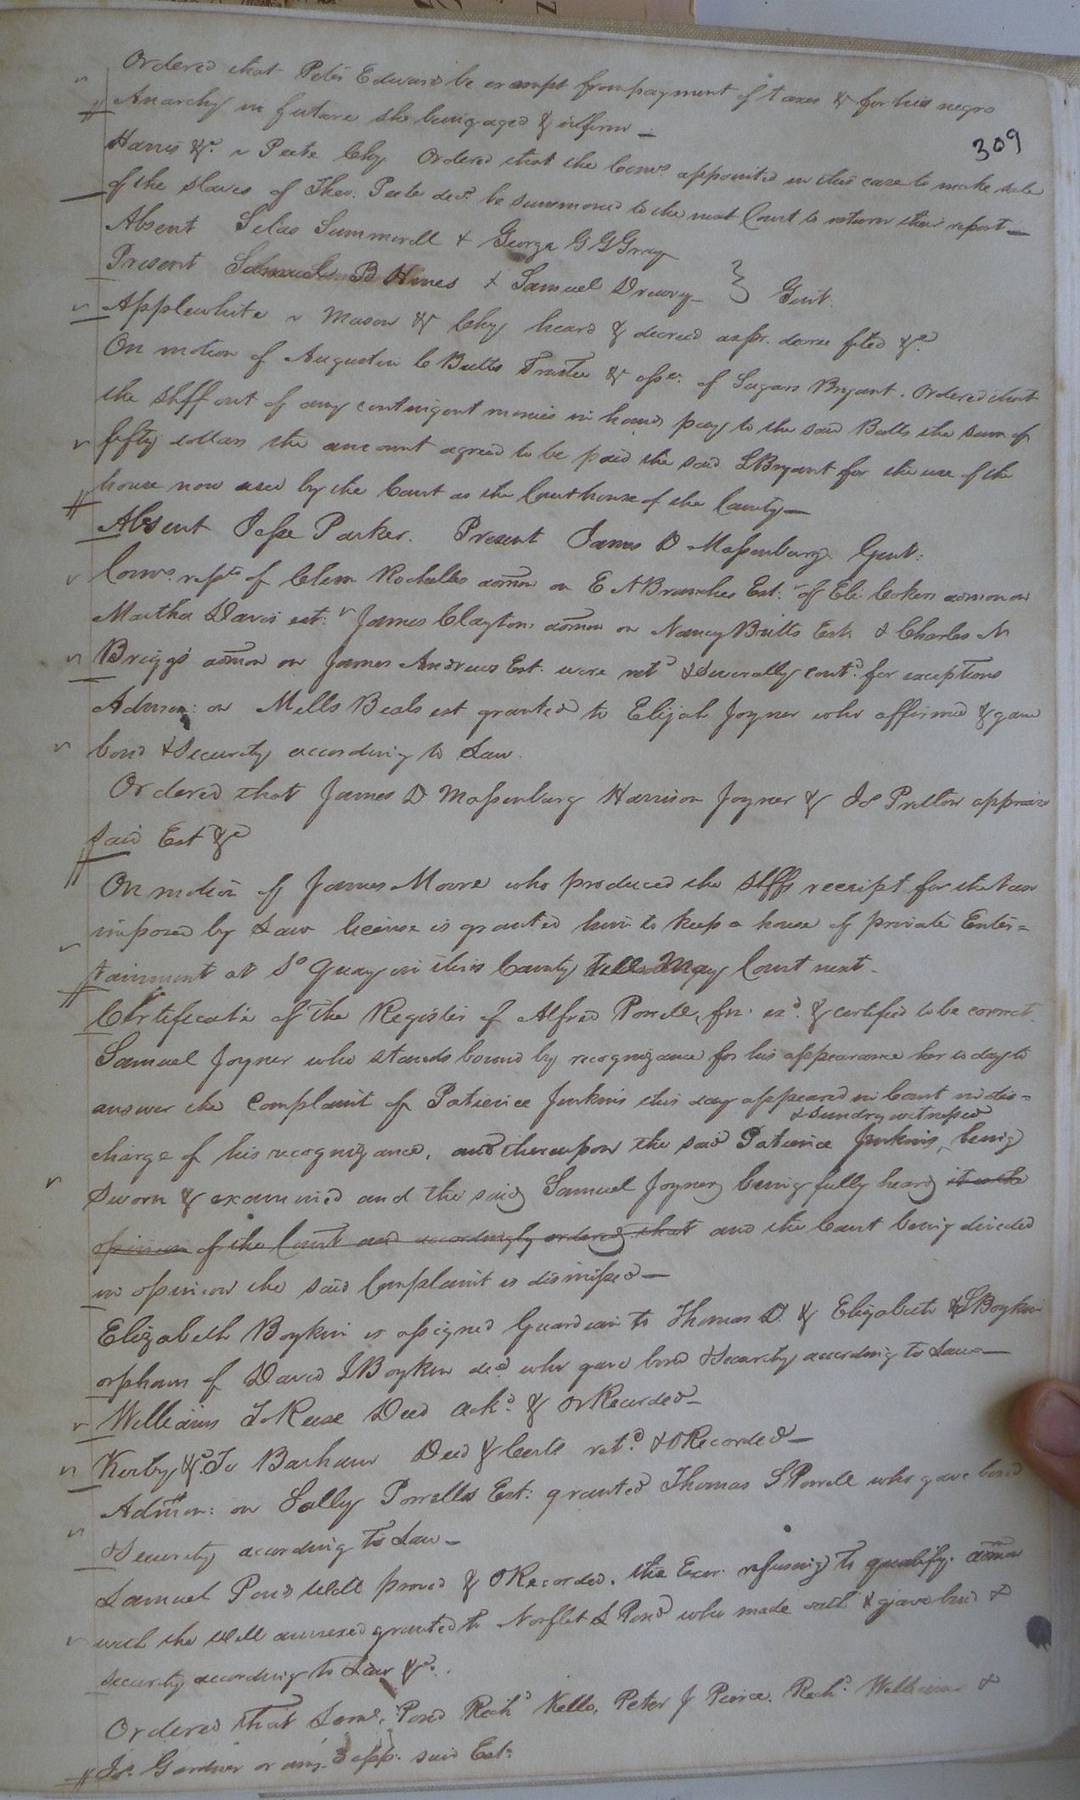 309
Ordered that Peter Edwards be exempt from payment of taxes &c for his negro
Anarchy in future she being aged & infirm —
Harris &c. v Peete Chy Ordered that the Comrs appointed in this case to make sale
of the slaves of Thos. Peete decd. be summoned to the next Court to return their report —
Absent Silas Summerell & George G G Gray
Present Samuel B Hines & Samuel Drewry } Gent.
Applewhite v Mason &c Chy heard & decreed as pr. decree filed &c
On motion of Augustin C Butts Trustee &c of Sugars Bryant. Ordered that
the Shff out of any contingent monies in hand pay to the said Butts the sum of
fifty dollars the amount agreed to be paid the said S Bryant for the use of the
house now used by the Court as the Courthouse of the County —
Absent Jesse Parker. Present James D Massenburg Gent:
Comrs repts of Clem Rochelles admon on E A Branches Est: of Eli Cokers admon on
Martha Davis est: James Claytons admon on Nancy Britts Est: & Charles N
Briggs admon on James Andrews Est. were retd & severally contd. for exceptions
Admon: on Mills Beals est granted to Elijah Joyner who affirmed & gave
bond & Security according to Law.
Ordered that James D Massenburg Harrison Joyner & Js Pretlow appraise
said Est &c
On motion of James Moore who produced the Shffs receipt for the tax
imposed by Law license is granted him to keep a house of private Enter=
tainment at So Quay in this County till May Court next.
Certificate of the Register of Alfred Powell, fn. exd. & certified to be correct.
Samuel Joyner who stands bound by recognizance for his appearance here to day to
answer the Complaint of Patience Jenkins this day appeared in Court in dis=
& Sundry witnesses
charge of his recognizance, and thereupon the said Patience Jenkins, being
Sworn & examined and the said Samuel Joyner being fully heard it is the
opinion of the Court and accordingly ordered that and the Court being divided
in opinion the said Complaint is dismissed —
Elizabeth Boykin is assigned Guardian to Thomas D. & Elizabeth Boykin
orphans of David J Boykin decd who gave bond & Security according to Law —
Williams To Reese Deed ackd. & OrRecorded —
Kirby &c To Barham Deed & Certe retd. & ORecorded —
Admon: on Sally Powells Est: granted Thomas S Powell who gave bond
& Security according to Law —
Samuel Ponds Will proved & ORecorded. the Exor. refusing to qualify. admon
with the Will annexed granted to Norflet L Pond who made oath & gave bond &
security according to Law &c.
Ordered that Saml. Pond Richd Kello, Peter J Pierce, Richd. Williams &
Js. Gardner or any 3 app. said Est: